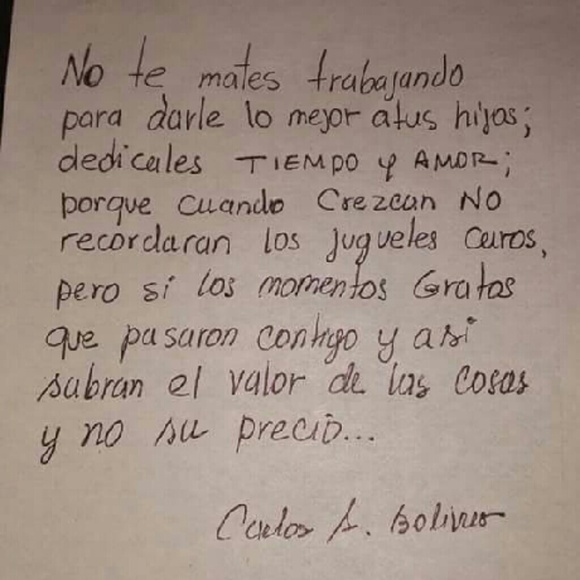 No te mates trabajando
para darle lo mejor a tus hijos;
dedicales TIEMPO y AMOR;
porque cuando Crezcan NO
recordaran los juguetes caros,
pero sí los momentos Gratos
que pasaron contigo y asi
sabran el valor de las cosas
y no su precio...
Carlos A. Bolivar